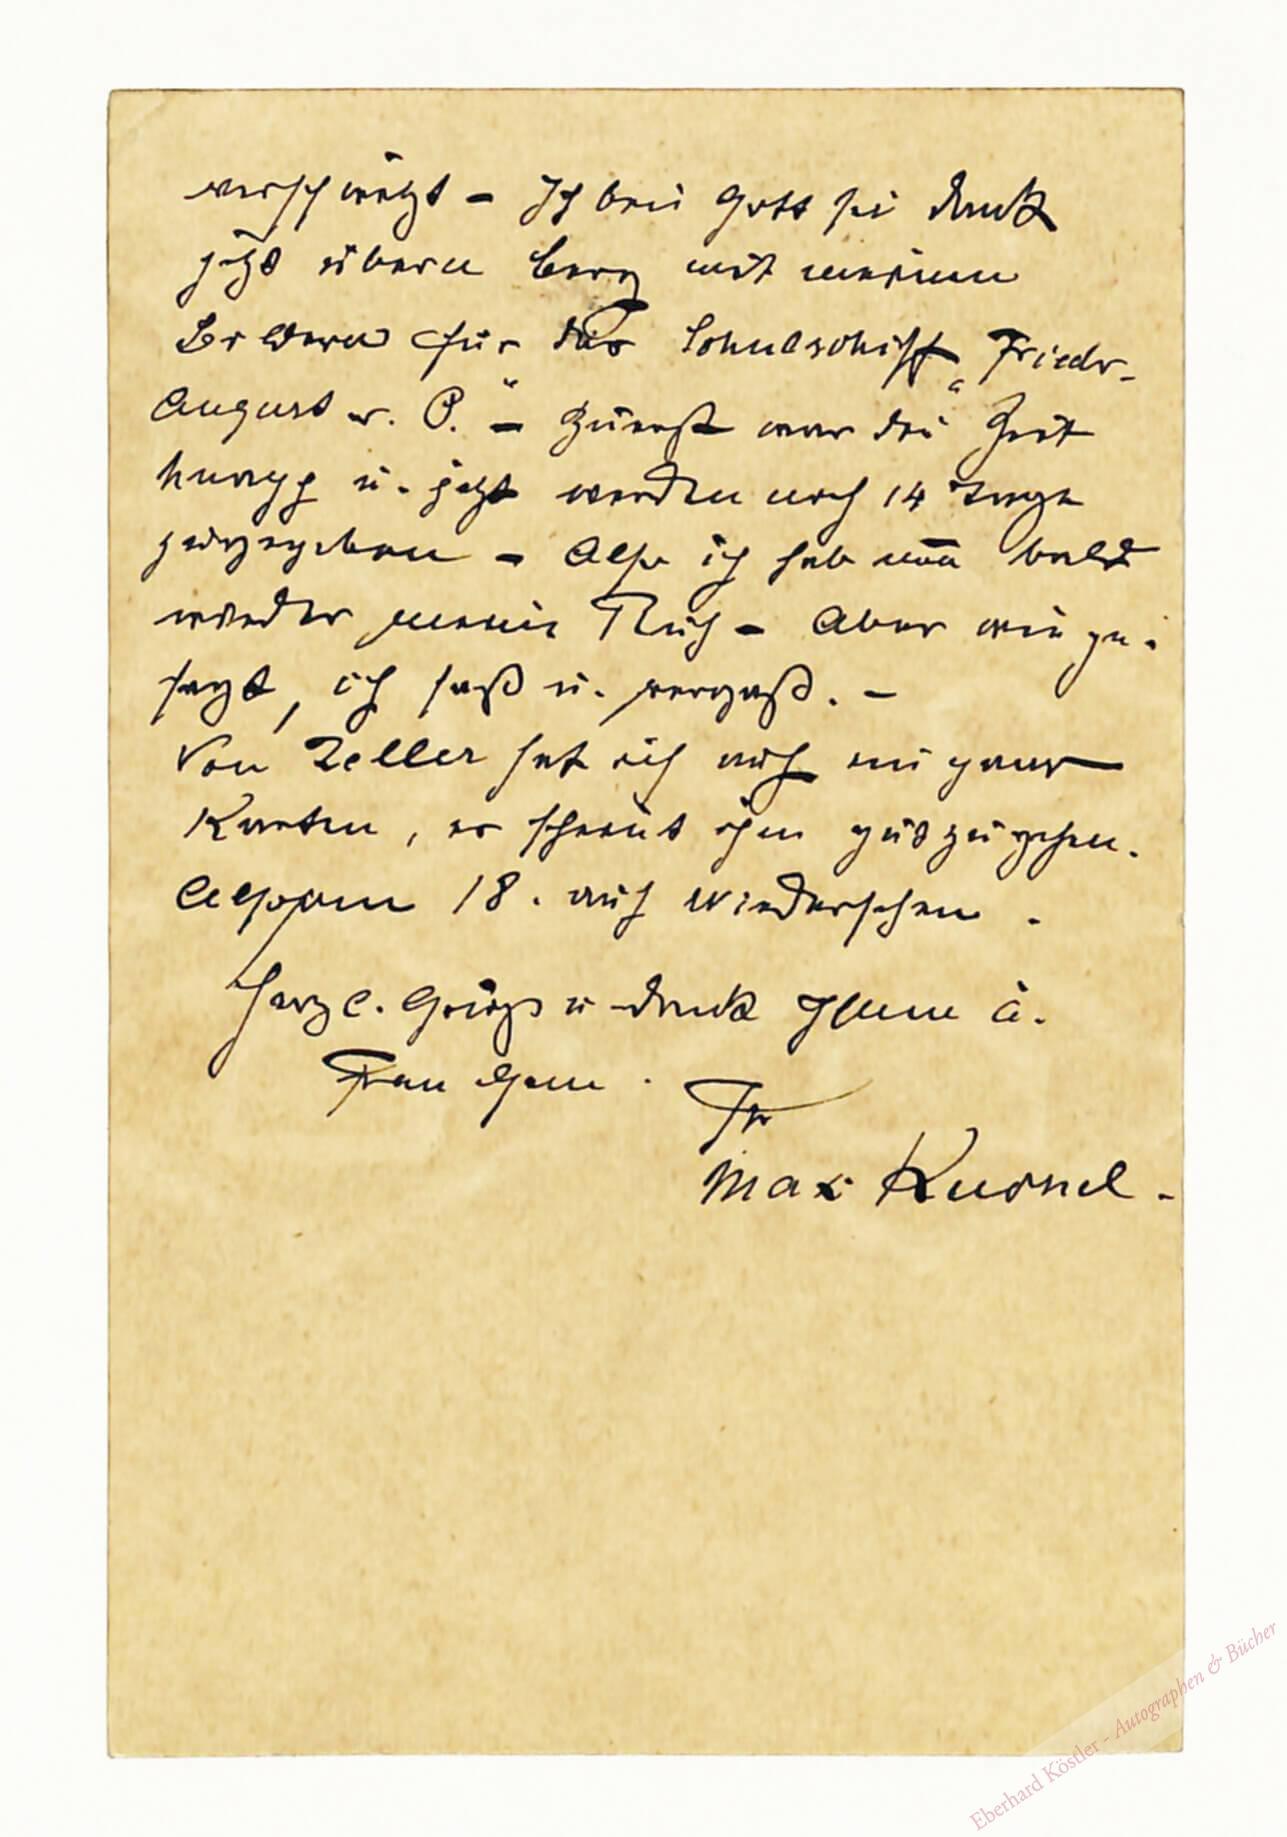 verschwitzt – Ich bin Gott sei Dank
jetzt übern Berg mit meinen
Bildern für das Schulschiff „Friedr.
August v. P." – Zuerst war die Zeit
knapp u. jetzt werden noch 14 Tage
zugegeben – Also ich hab nun bald
wieder meine Ruh – Aber wie ge-
sagt, ich saß u. vergaß. –
Von Zeller hat ich auch ein paar
Karten, es scheint ihm gut zu gehen.
Also am 18. auf Wiedersehen.
Herzl. Grüße u Dank Ihnen u.
Frau Gem.
Ihr
Max Kuschel.
Eberhard Köstler - Autographen & Bücher